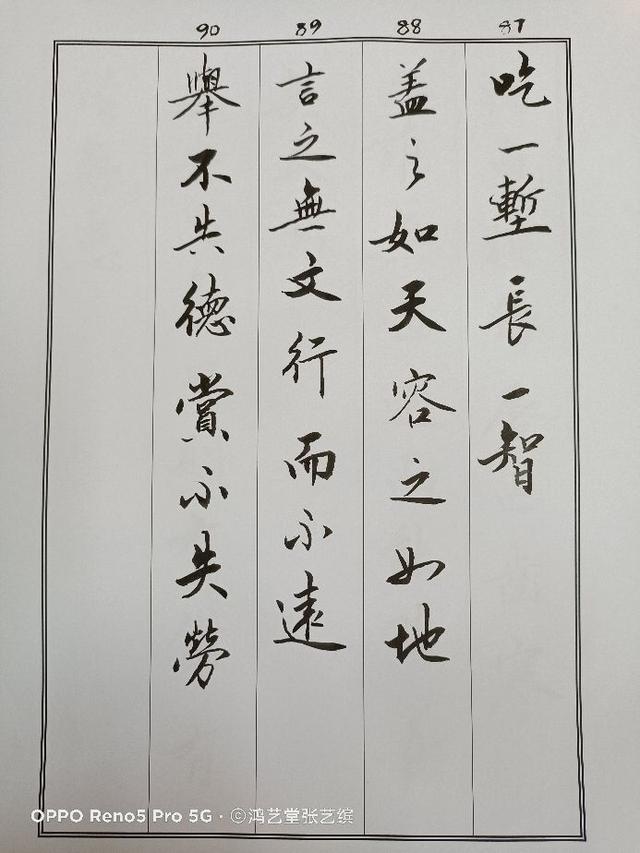 87
吃一塹長一智
88
蓋之如天容之如地
89
言之無文行而不遠
90
舉不失德賞不失勞
OPPO Reno5 Pro 5G · ©鸿艺堂张艺缤